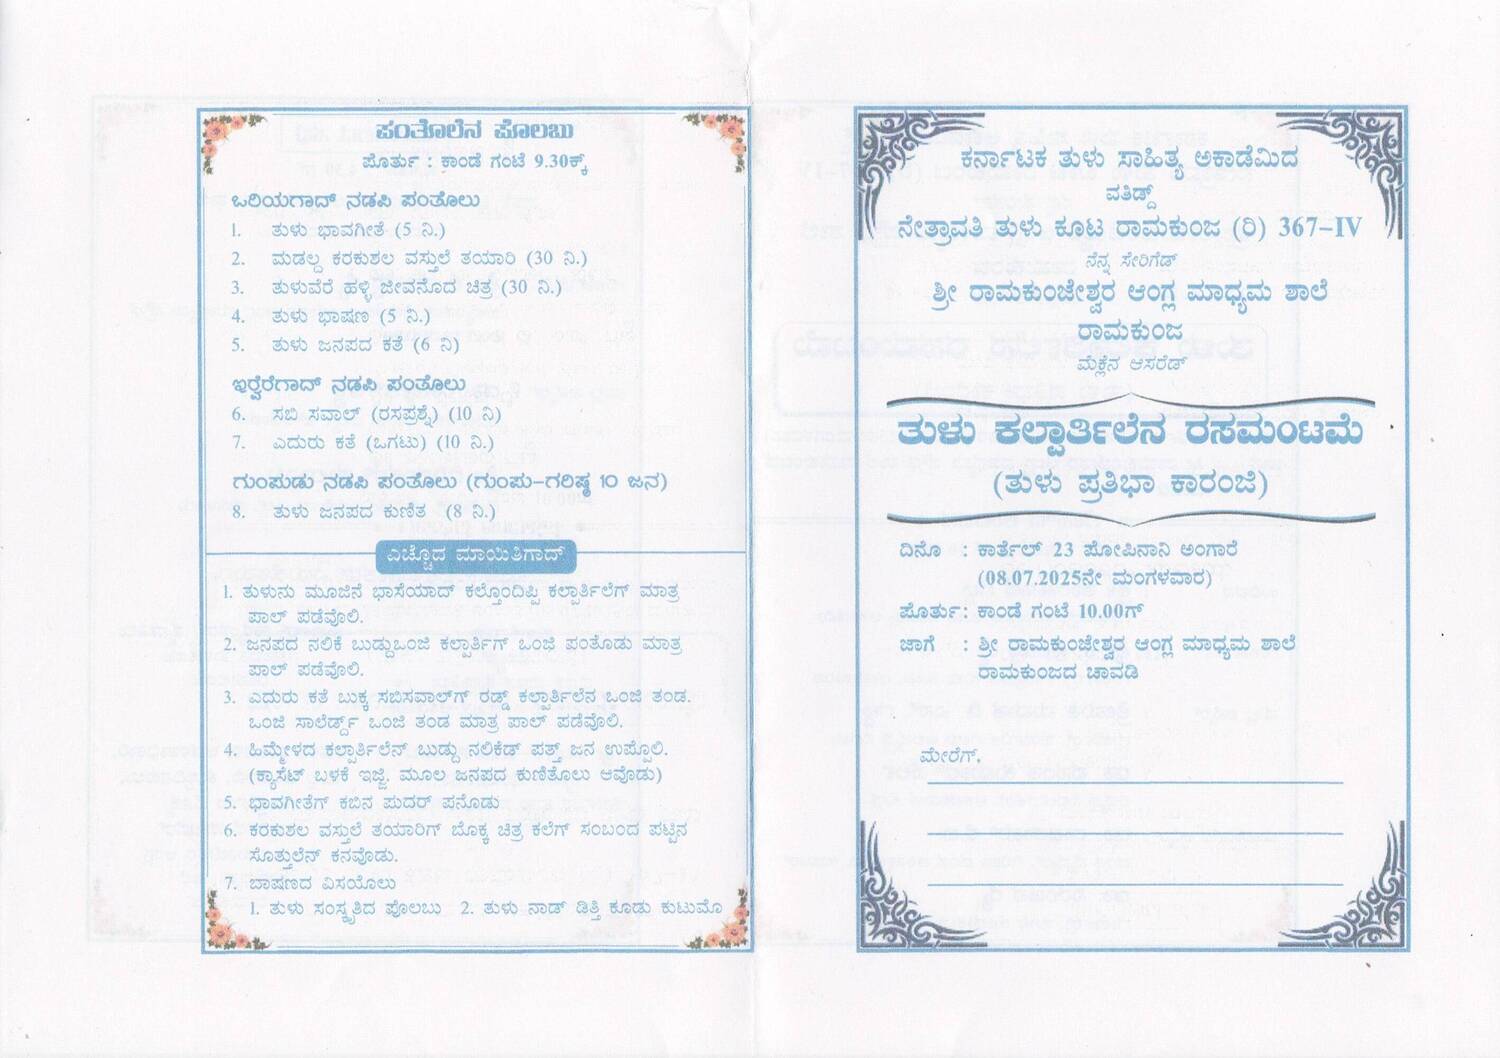 ಪಂತೊಲೆನ ಪೊಲಬು
ಪೊರ್ತು : ಕಾಂಡೆ ಗಂಟೆ 9.30ಕ್ಕ್
ಒರಿಯಗಾದ್ ನಡಪಿ ಪಂತೊಲು
1. ತುಳು ಭಾವಗೀತೆ (5 ನಿ.)
2. ಮಡಲ್ದ ಕರಕುಶಲ ವಸ್ತುಲೆ ತಯಾರಿ (30 ನಿ.)
3. ತುಳುವೆರೆ ಹಳ್ಳಿ ಜೀವನೊದ ಚಿತ್ರ (30 ನಿ.)
4. ತುಳು ಭಾಷಣ (5 ನಿ.)
5. ತುಳು ಜನಪದ ಕತೆ (6 ನಿ)
ಇರ್ವೆರೆಗಾದ್ ನಡಪಿ ಪಂತೊಲು
6. ಸಬಿ ಸವಾಲ್ (ರಸಪ್ರಶ್ನೆ) (10 ನಿ)
7. ಎದುರು ಕತೆ (ಒಗಟು) (10 ನಿ.)
ಗುಂಪುಡು ನಡಪಿ ಪಂತೊಲು (ಗುಂಪು-ಗರಿಷ್ಠ 10 ಜನ)
8. ತುಳು ಜನಪದ ಕುಣಿತ (8 ನಿ.)
ಎಚ್ಚೊದ ಮಾಯಿತಿಗಾದ್
1. ತುಳುನು ಮೂಜಿನೆ ಭಾಸೆಯಾದ್ ಕಲ್ತೊಂದಿಪ್ಪಿ ಕಲ್ಪಾರ್ತಿಲೆಗ್ ಮಾತ್ರ
ಪಾಲ್ ಪಡೆವೊಲಿ.
2. ಜನಪದ ನಲಿಕೆ ಬುಡ್ದುಒಂಜಿ ಕಲ್ಪಾರ್ತಿಗ್ ಒಂಜಿ ಪಂತೊಡು ಮಾತ್ರ
ಪಾಲ್ ಪಡೆವೊಲಿ.
3. ಎದುರು ಕತೆ ಬುಕ್ಕ ಸಬಿಸವಾಲ್‌ಗ್ ರಡ್ಡ್ ಕಲ್ಪಾರ್ತಿಲೆನ ಒಂಜಿ ತಂಡ.
ಒಂಜಿ ಸಾಲೆರ್ಡ್ದ್ ಒಂಜಿ ತಂಡ ಮಾತ್ರ ಪಾಲ್ ಪಡೆವೊಲಿ.
4. ಹಿಮ್ಮೇಳದ ಕಲ್ಪಾರ್ತಿಲೆನ್ ಬುಡ್ದು ನಲಿಕೆಡ್ ಪತ್ತ್ ಜನ ಉಪ್ಪೊಲಿ.
(ಕ್ಯಾಸೆಟ್ ಬಳಕೆ ಇಜ್ಜಿ. ಮೂಲ ಜನಪದ ಕುಣಿತೊಲು ಆವೊಡು)
5. ಭಾವಗೀತೆಗ್ ಕಬಿನ ಪುದರ್ ಪನೊಡು
6. ಕರಕುಶಲ ವಸ್ತುಲೆ ತಯಾರಿಗ್ ಬೊಕ್ಕ ಚಿತ್ರ ಕಲೆಗ್ ಸಂಬಂದ ಪಟ್ಟಿನ
ಸೊತ್ತುಲೆನ್ ಕನವೊಡು.
7. ಬಾಷಣದ ವಿಸಯೊಲು
1. ತುಳು ಸಂಸ್ಕೃತಿದ ಪೊಲಬು 2. ತುಳು ನಾಡ್ ಡಿತ್ತಿ ಕೂಡು ಕುಟುಮೊ
ಕರ್ನಾಟಕ ತುಳು ಸಾಹಿತ್ಯ ಅಕಾಡೆಮಿದ
ವತಿಡ್ದ್
ನೇತ್ರಾವತಿ ತುಳು ಕೂಟ ರಾಮಕುಂಜ (ರಿ) 367-IV
ನೆನ್ನ ಸೇರಿಗೆಡ್
ಶ್ರೀ ರಾಮಕುಂಜೇಶ್ವರ ಆಂಗ್ಲ ಮಾಧ್ಯಮ ಶಾಲೆ
ರಾಮಕುಂಜ
ಮೆಕ್ಲೆನ ಆಸರೆಡ್
ತುಳು ಕಲ್ಪಾರ್ತಿಲೆನ ರಸಮಂಟಮೆ
(ತುಳು ಪ್ರತಿಭಾ ಕಾರಂಜಿ)
ದಿನೊ : ಕಾರ್ತೆಲ್ 23 ಪೋಪಿನಾನಿ ಅಂಗಾರೆ
(08.07.2025ನೇ ಮಂಗಳವಾರ)
ಪೊರ್ತು: ಕಾಂಡೆ ಗಂಟೆ 10.00ಗ್
ಜಾಗೆ : ಶ್ರೀ ರಾಮಕುಂಜೇಶ್ವರ ಆಂಗ್ಲ ಮಾಧ್ಯಮ ಶಾಲೆ
ರಾಮಕುಂಜದ ಚಾವಡಿ
ಮೇರೆಗ್.